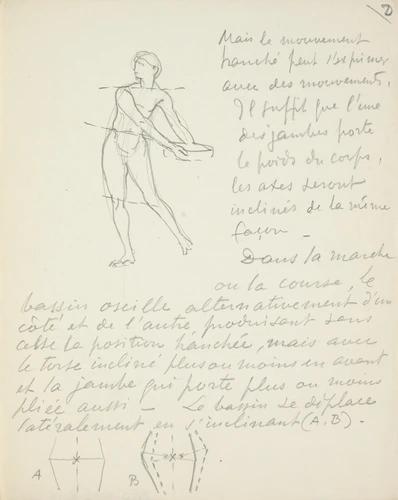 D
Mais le mouvement
hanché peut s'exprimer
avec des mouvements.
Il suffit que l'une
des jambes porte
le poids du corps,
les axes seront
inclinés de la même
façon _
Dans la marche
ou la course, le
bassin oscille alternativement d'un
côté et de l'autre, produisant sans
cesse la position hanchée, mais avec
le torse incliné plus ou moins en avant
et la jambe qui porte plus ou moins
pliée aussi _ Le bassin se déplace
latéralement en s'inclinant (A, B) -
A
B